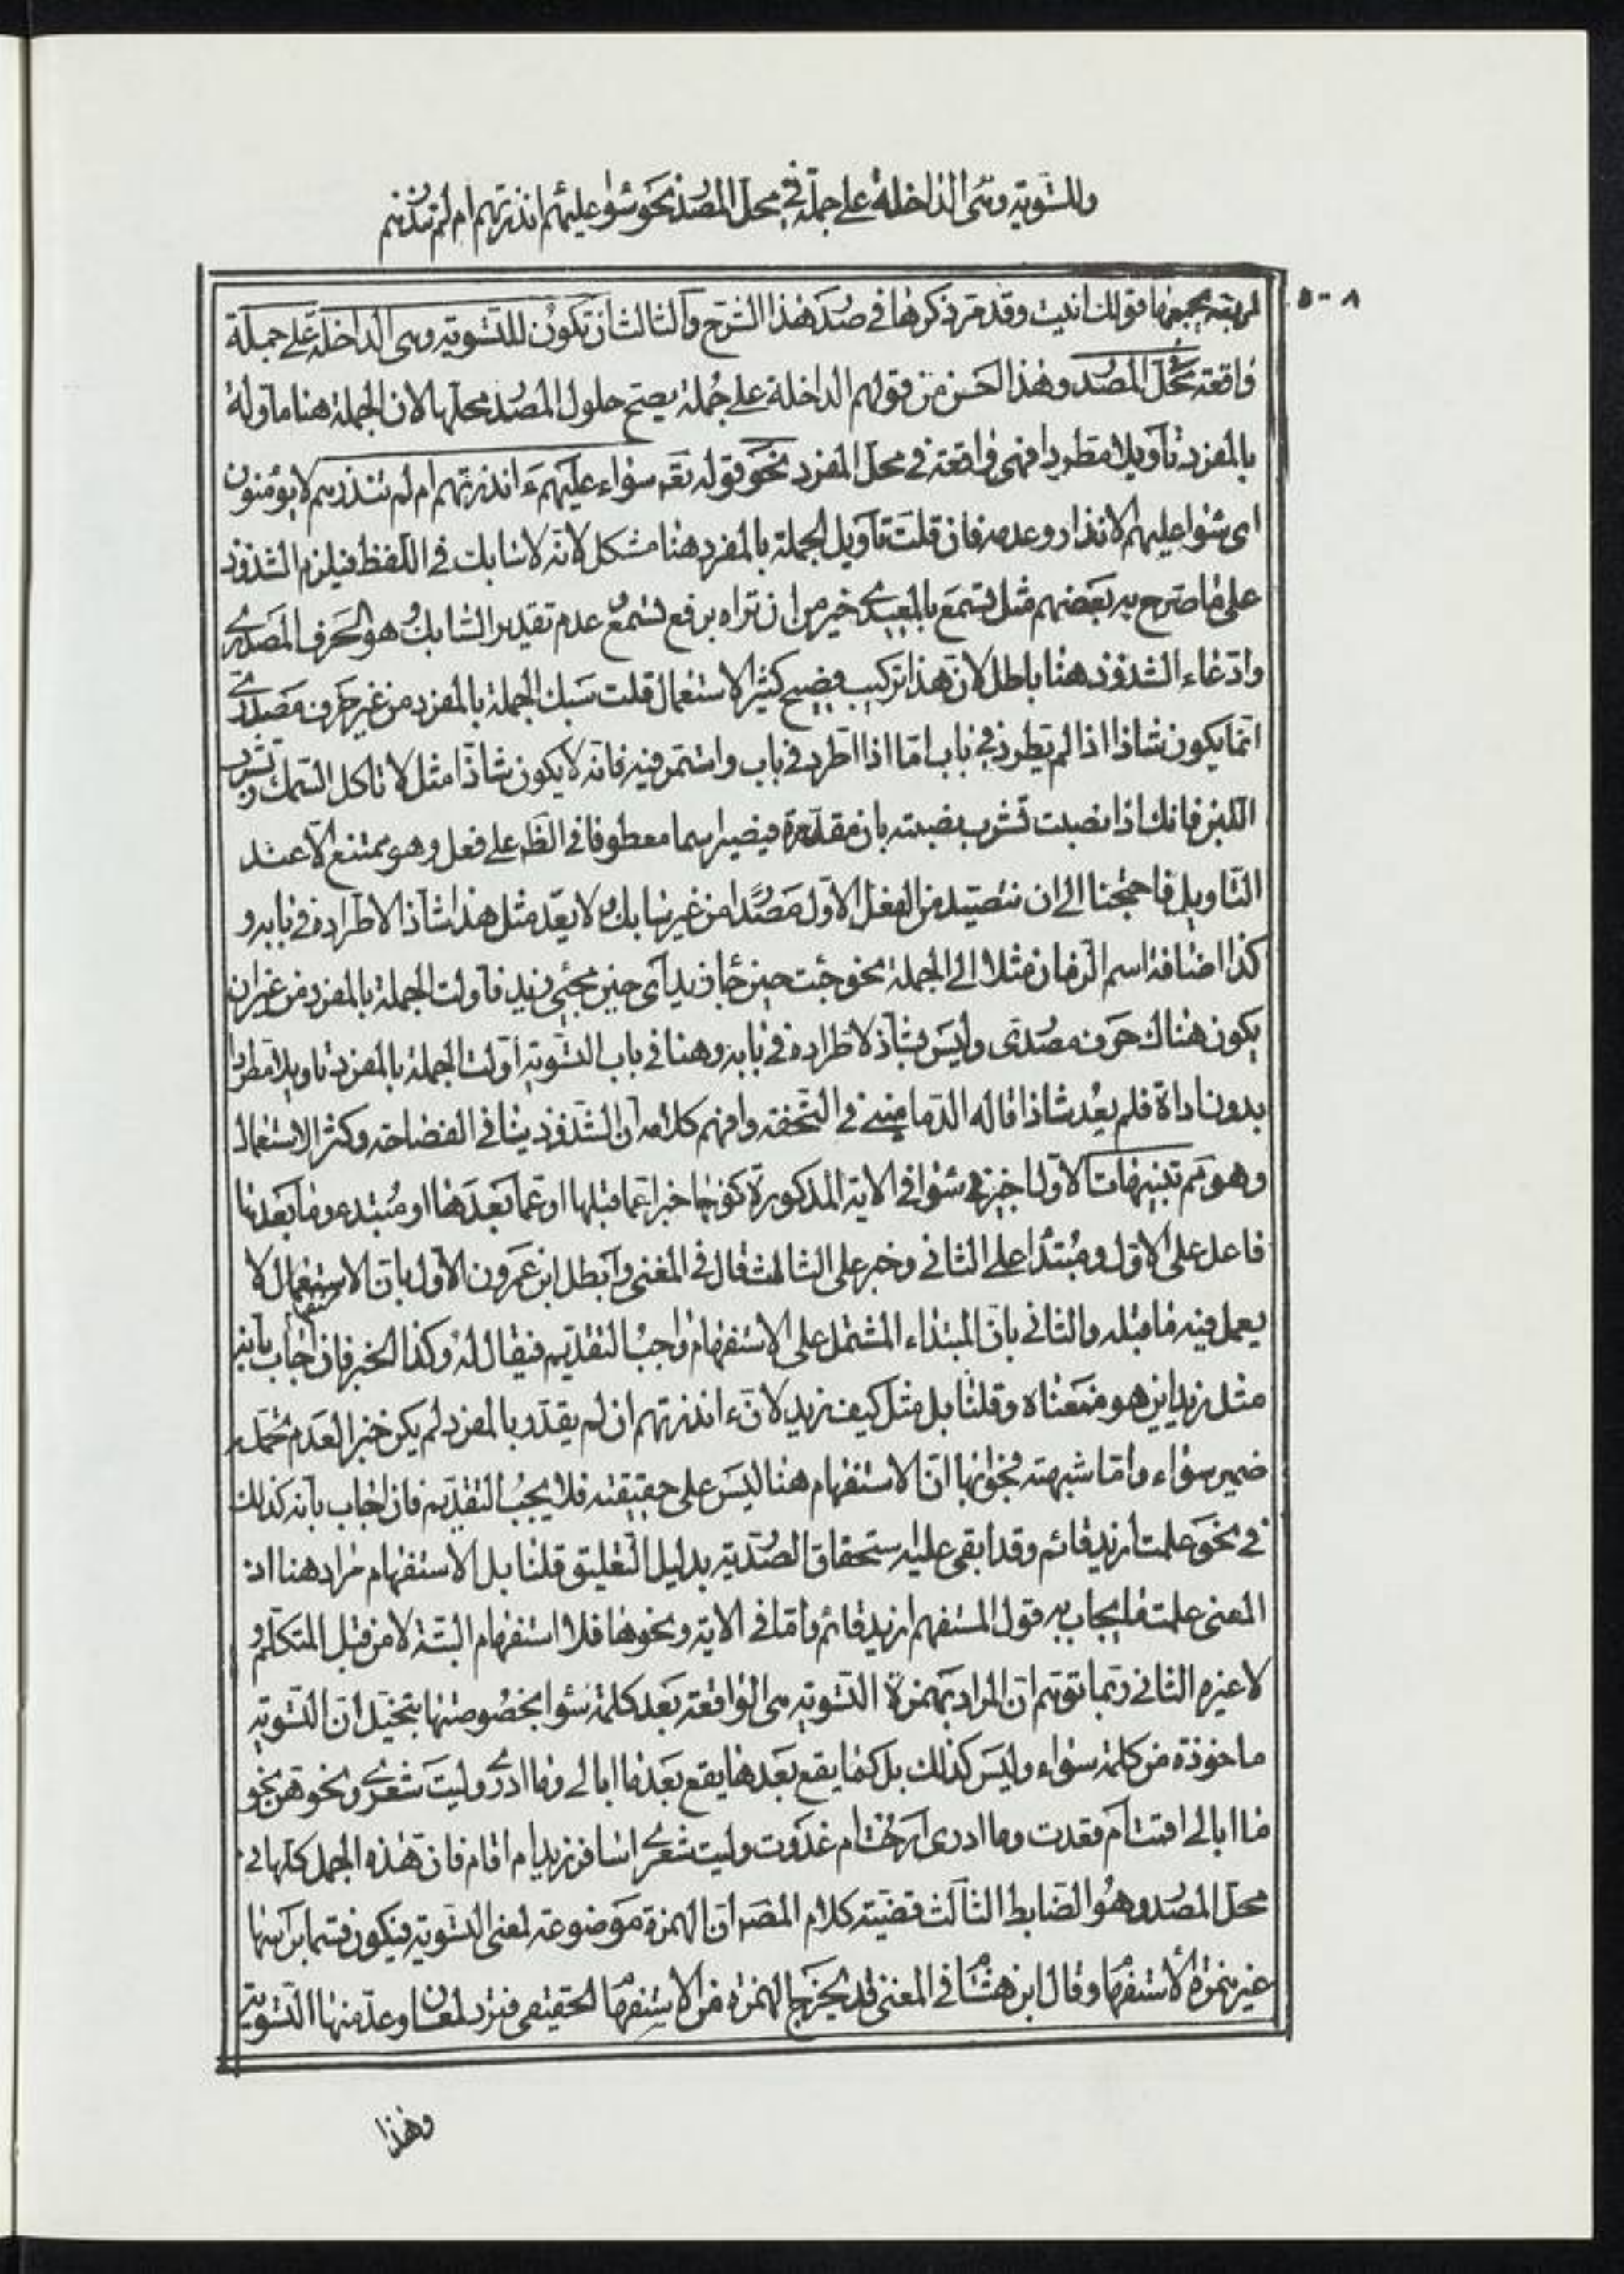 وللتسوية وهى الداخلة على جملة في محل المصدر نحو سواء عليهم أنذرتهم ام لم تنذرهم
٥٠٨
اربعة يجمعها قولك انيت وقد مر ذكرها في صدر هذا الشرح والثالث ان تكون للتسوية وهى الداخلة على جملة
واقعة محل المصدر وهذا احسن من قولهم الداخلة على جملة يصح حلول المصدر محلها لان الجملة هنا مأولة
بالمفرد تأويلا مطردا فهى واقعة في محل المفرد نحو قوله تعه سواء عليهم ءانذرتهم ام لم تنذرهم لا يؤمنون
اى سواء عليهم الانذار وعدمه فان قلت تأويل الجملة بالمفرد هنا مشكل لانه لا سابك في اللفظ فيلزم الشذوذ
على ما صرح به بعضهم مثل تسمع بالمعيدى خير من ان تراه برفع تسمع عدم تقدير السابك وهو الحرف المصدرى
وادعاء الشذوذ هنا باطل لان هذا تركيب فصيح كثير الاستعمال قلت سبك الجملة بالمفرد من غير حرف مصدرى
انما يكون شاذا اذا لم يطرد في باب اما اذا اطرد في باب واستمر فيه فانه لا يكون شاذا مثل لا تاكل السمك وتشرب
اللبن فانك اذا نصبت تشرب نصبته بان مقدرة فيصير اسما معطوفا في الظه على فعل وهو ممتنع الا عند
التاويل فاحتجنا الى ان نتصيد من الفعل الاول مصدرا من غير سابك ولا يعد مثل هذا شاذا لاطراده في بابه و
كذا اضافة اسم الزمان مثلا الى الجملة نحو جئت حين جاء زيد اى حين مجئ زيد فاولت الجملة بالمفرد من غير ان
يكون هناك حرف مصدرى وليس بشاذ لاطراده في بابه وهنا في باب التسوية اولت الجملة بالمفرد تاويلا مطردا
بدون اداة فلم يعد شاذا قاله الدمامينى في التحفة وافهم كلامه ان الشذوذ ينافى الفصاحة وكثرة الاستعمال
وهو مم تنبيهات الاول اجيز في سواء في الاية المذكورة كونها خبرا عما قبلها او عما بعدها او مبتدء وما بعدها
فاعل على الاول ومبتدا على الثانى وخبر على الثالث قال في المغنى وابطل ابن عمرون الاول بان الاستفهام لا
يعمل فيه ما قبله والثانى بان المبتداء المشتمل على الاستفهام واجب التقديم فيقال له وكذا الخبر فان اجاب بانه
مثل زيد اين هو منعناه وقلنا بل مثل كيف زيد لان ءانذرتهم ان لم يقدر بالمفرد لم يكن خبرا لعدم تحمله
ضمير سواء واما شبهته فجوابها ان الاستفهام هنا ليس على حقيقته فلا يجب التقديم فان اجاب بانه كذلك
في نحو علمت ازيد قائم وقد ابقى عليه استحقاق الصدرية بدليل التعليق قلنا بل الاستفهام مراد هنا اذ
المعنى علمت ما يجاب به قول المستفهم ازيد قائم واما في الاية ونحوها فلا استفهام البتة لا من قبل المتكلم و
لا غيره الثانى ربما توهم ان المراد بهمزة التسوية هى الواقعة بعد كلمة سواء بخصوصها بتخيل ان التسوية
ماخوذة من كلمة سواء وليس كذلك بل كما يقع بعدها يقع بعد ما ابالى وما ادرى وليت شعرى ونحوهن نحو
ما ابالى اقمت ام قعدت وما ادرى ارحت ام غدوت وليت شعرى اسافر زيد ام اقام فان هذه الجمل كلها في
محل المصدر وهو الضابط الثالث قضية كلام المصه ان الهمزة موضوعة لمعنى التسوية فيكون قسما براسها
غير همزة الاستفهام وقال ابن هشام في المغنى قد يخرج الهمزة من الاستفهام الحقيقى فترد لمعان وعد منها التسوية
وهذا